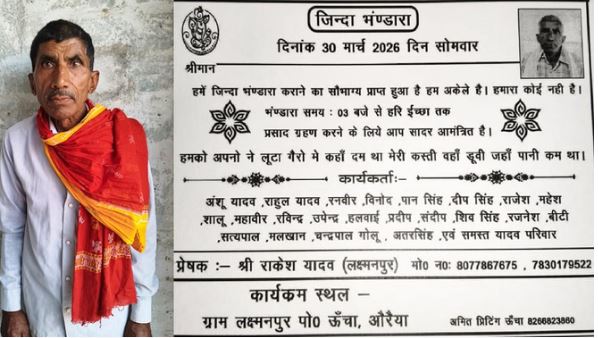 जिन्दा भंण्डारा
दिनांक 30 मार्च 2026 दिन सोमवार
श्रीमान
हमें जिन्दा भंण्डारा कराने का सौभाग्य प्राप्त हुआ है हम अकेले है। हमारा कोई नही है।
भंण्डारा समय : 03 बजे से हरि ईच्छा तक
प्रसाद ग्रहण करने के लिये आप सादर आमंत्रित है।
हमको अपनो ने लूटा गैरो मे कहाँ दम था मेरी कस्ती वहाँ डूवी जहाँ पानी कम था।
कार्यकर्ताः–
अंशू यादव ,राहुल यादव ,रनवीर ,विनोद ,पान सिंह ,दीप सिंह ,राजेश ,महेश
,शालू ,महावीर ,रविन्द्र ,उपेन्द्र ,हलवाई ,प्रदीप ,संदीप ,शिव सिंह ,रजनेश ,बीटी
,सत्यपाल ,मलखान ,चन्द्रपाल गोलू , अतरसिंह ,एवं समस्त यादव परिवार
प्रेषक :– श्री राकेश यादव (लक्ष्मनपुर) मो० न०: 8077867675 , 7830179522
कार्यकम स्थल –
ग्राम लक्ष्मनपुर पो० ऊँचा, औरैया
अमित प्रिटिंग ऊँचा 8266823860